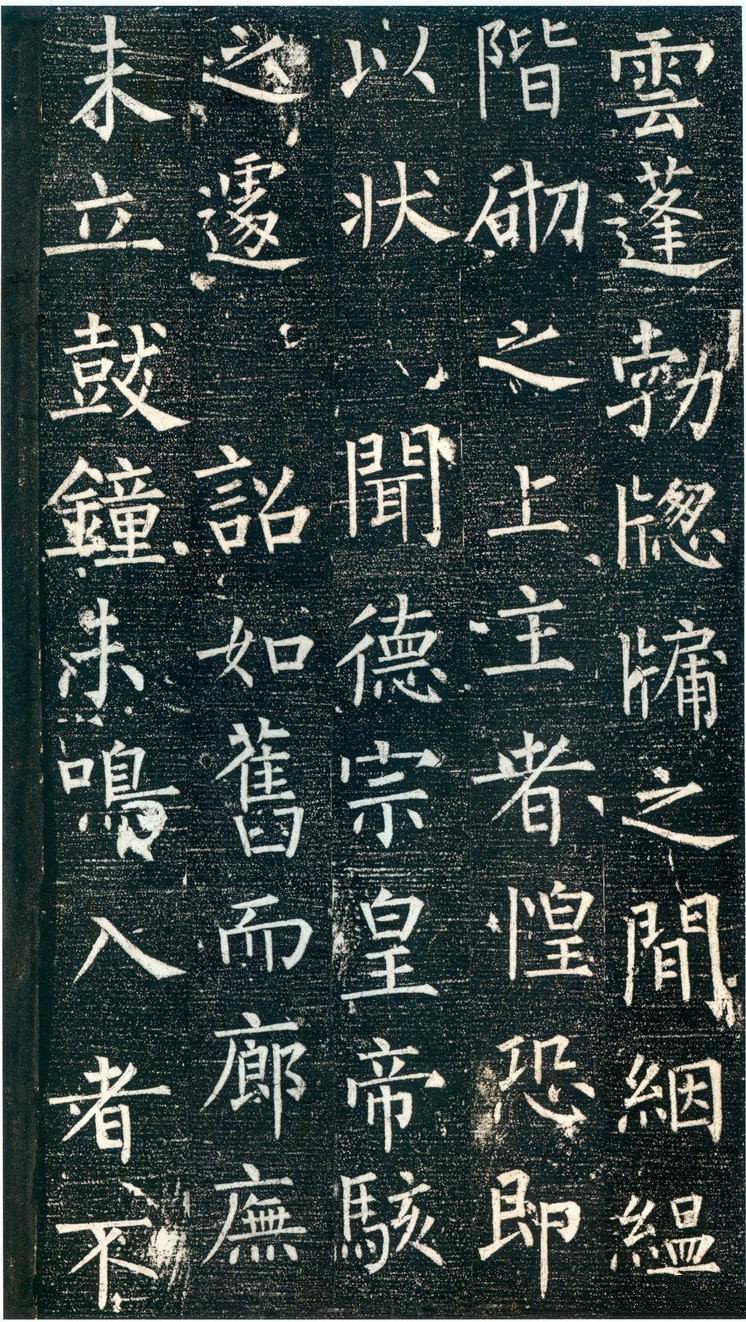 雲蓬勃牎牖之間絪緼
階砌之上主者惶恐即
以状聞德宗皇帝駭
之遽詔如舊而廊廡
未立鼓鐘未鳴入者不